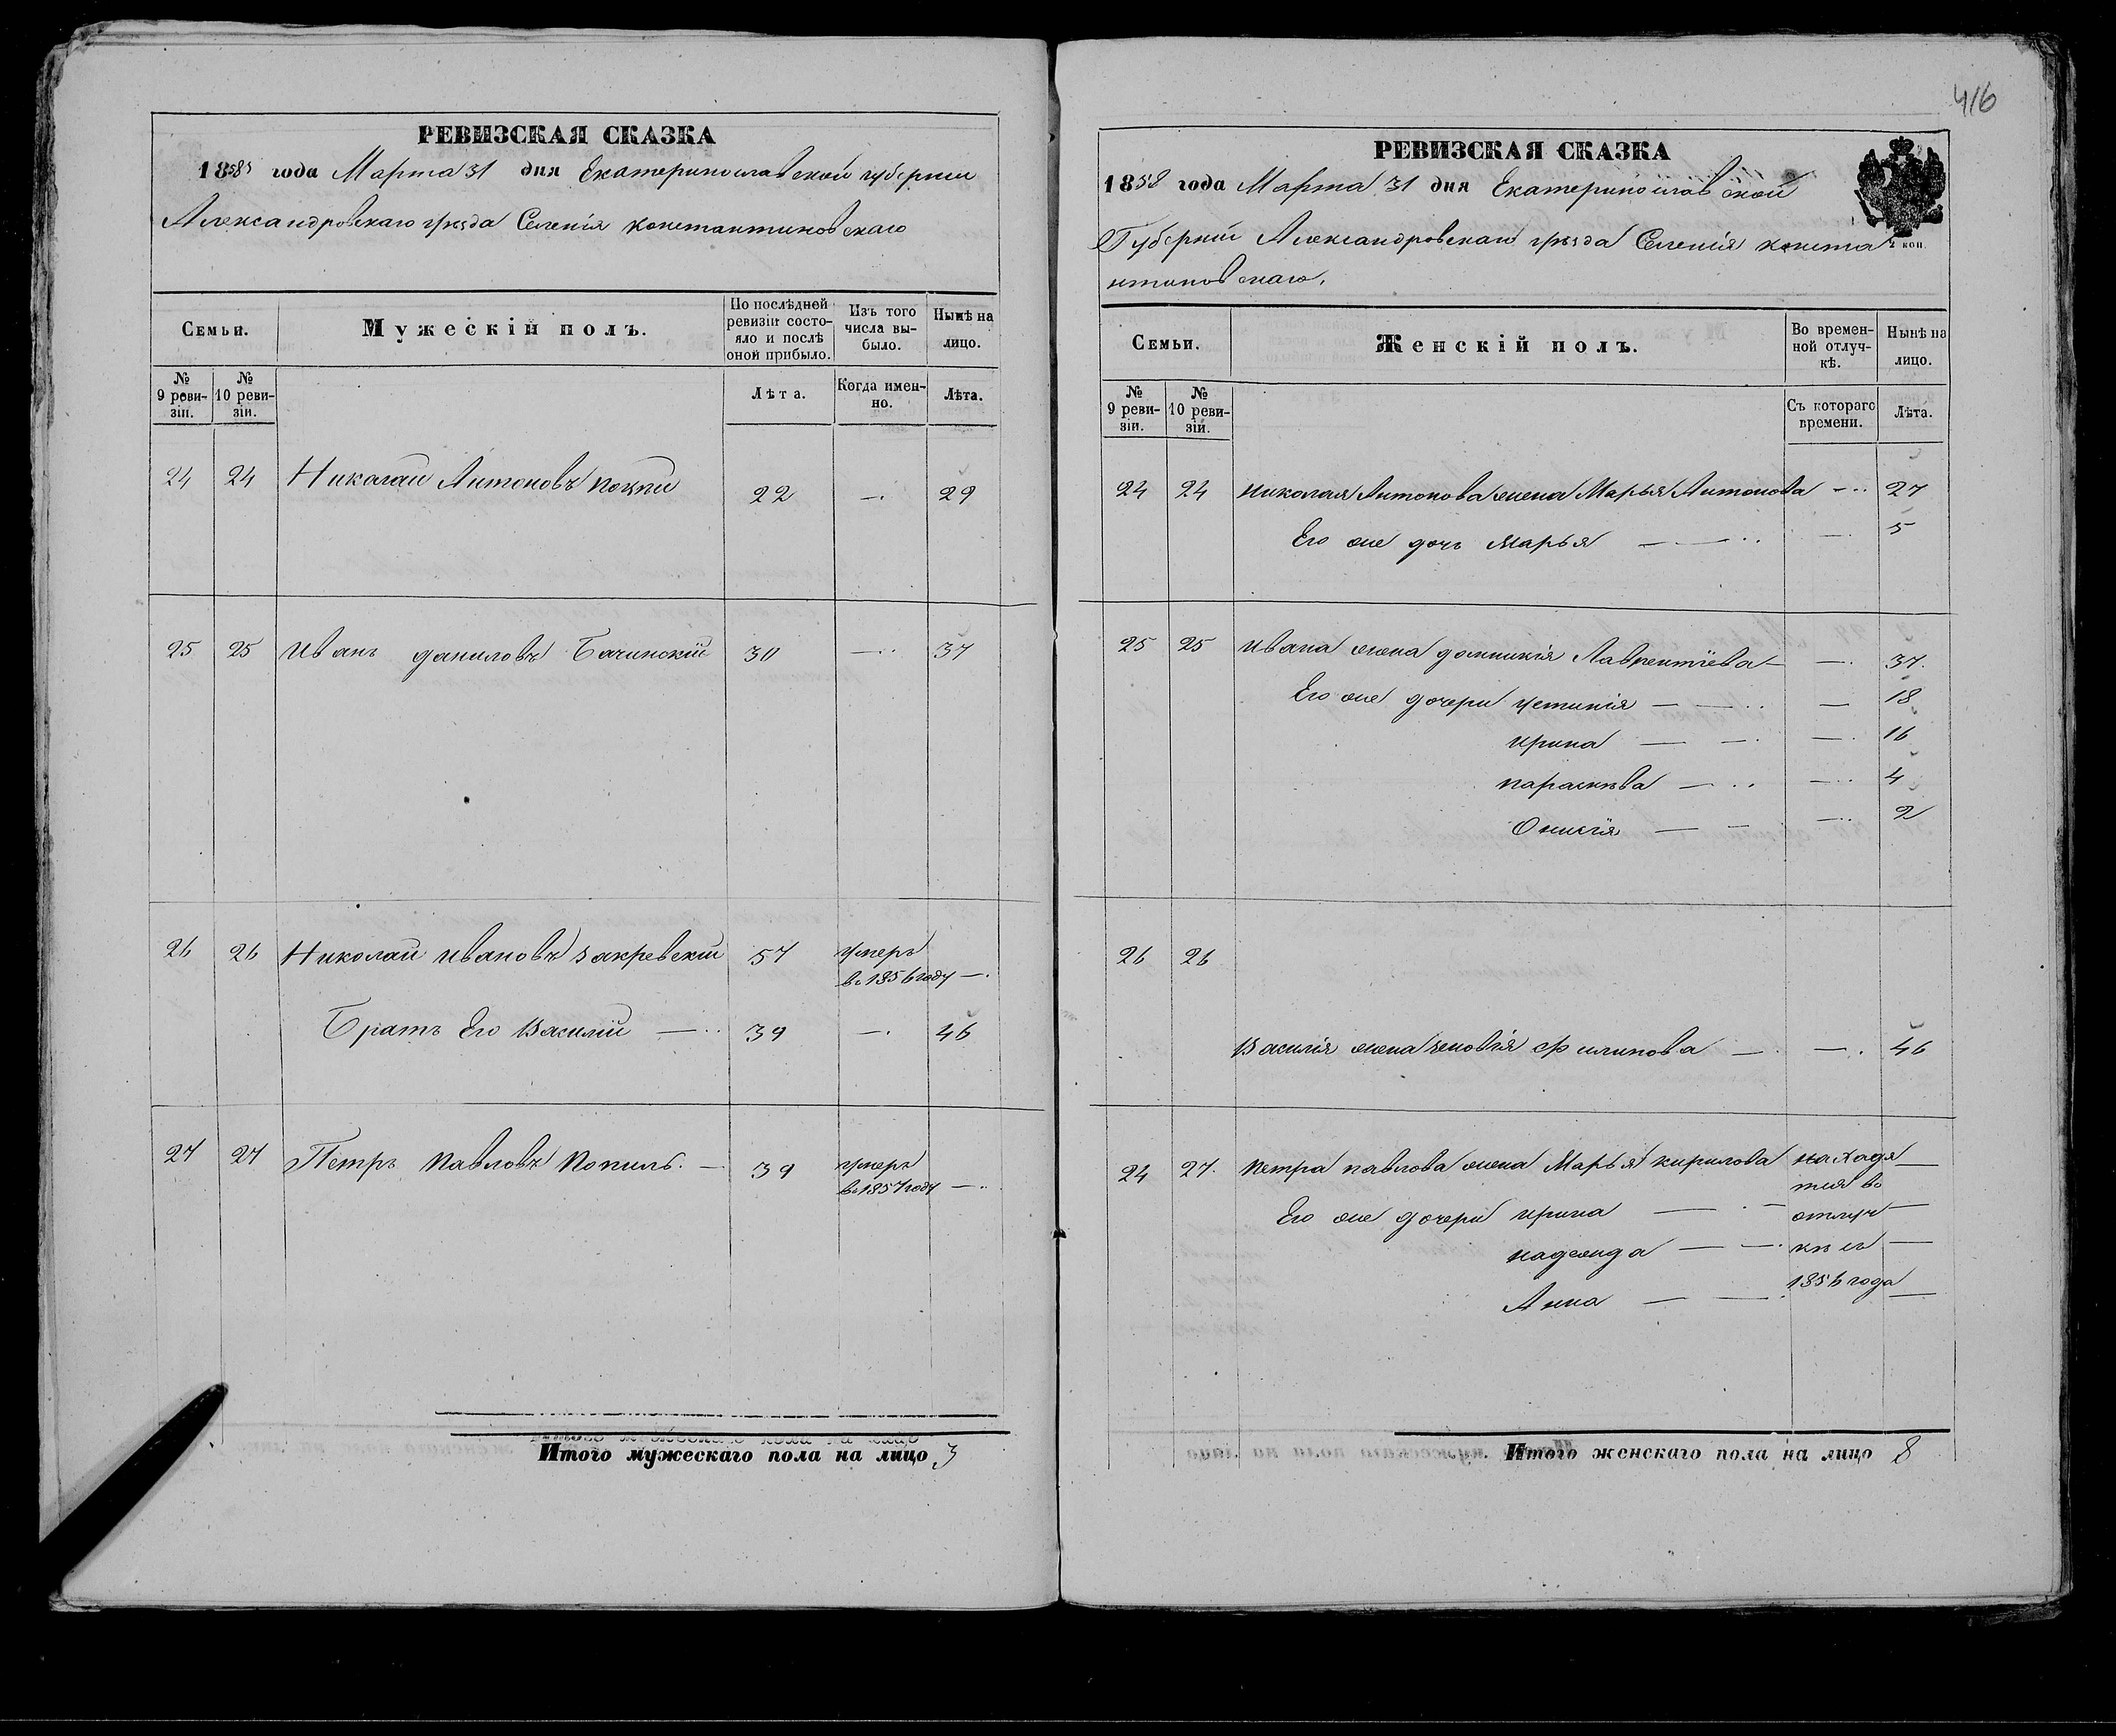 416
РЕВИЗСКАЯ СКАЗКА
1858 года Марта 31 дня Екатеринославской губернии
Александровскаго уѣзда Селенія константиновскаго
Семьи. Мужескій полъ. По послѣдней ревизіи состояло и послѣ оной прибыло. Изъ того числа выбыло. Нынѣ на лицо.
№ 9 ревизіи. № 10 ревизіи. Лѣта. Когда именно. Лѣта.
24 24 Николай Антоновъ 22 —. 29
25 25 Иванъ даниловъ Бачинскій 30 —.. 37
26 26 Николай ивановъ закревскій 57 умеръ
въ 1856 году —.
Братъ Его Василій —.. 39 —. 46
27 27 Петръ Павловъ Копилъ. — 39 умеръ
въ 1857 году —..
Итого мужескаго пола на лицо 3
РЕВИЗСКАЯ СКАЗКА
1858 года Марта 31 дня Екатеринославской
Губерніи Александровскаго уѣзда Селенія конста
нтиновскаго.
Семьи. Женскій полъ. Во временной отлучкѣ. Нынѣ на лицо.
№ 9 ревизіи. № 10 ревизіи. Съ котораго времени. Лѣта.
24 24 николая Антонова жена Марья Антонова —.. 27
Его же дочь Марья — —.. —. 5
25 25 Ивана жена домникія Лаврентіева — —. 37.
Его же дочери Устинія — —.. — 18
ирина — —. —. 16
параскѣва —.. —.. 4
Онисія — — —.. 2
26 26
Василія жена зеновія филипова —. —. 46
27 27. петра павлова жена Марья кирилова находя —
тся въ
Его же дочери ирина —. — отлуч —
надежда — —. кѣ съ —
1856 года
Анна — —. —
Итого женскаго пола на лицо 8